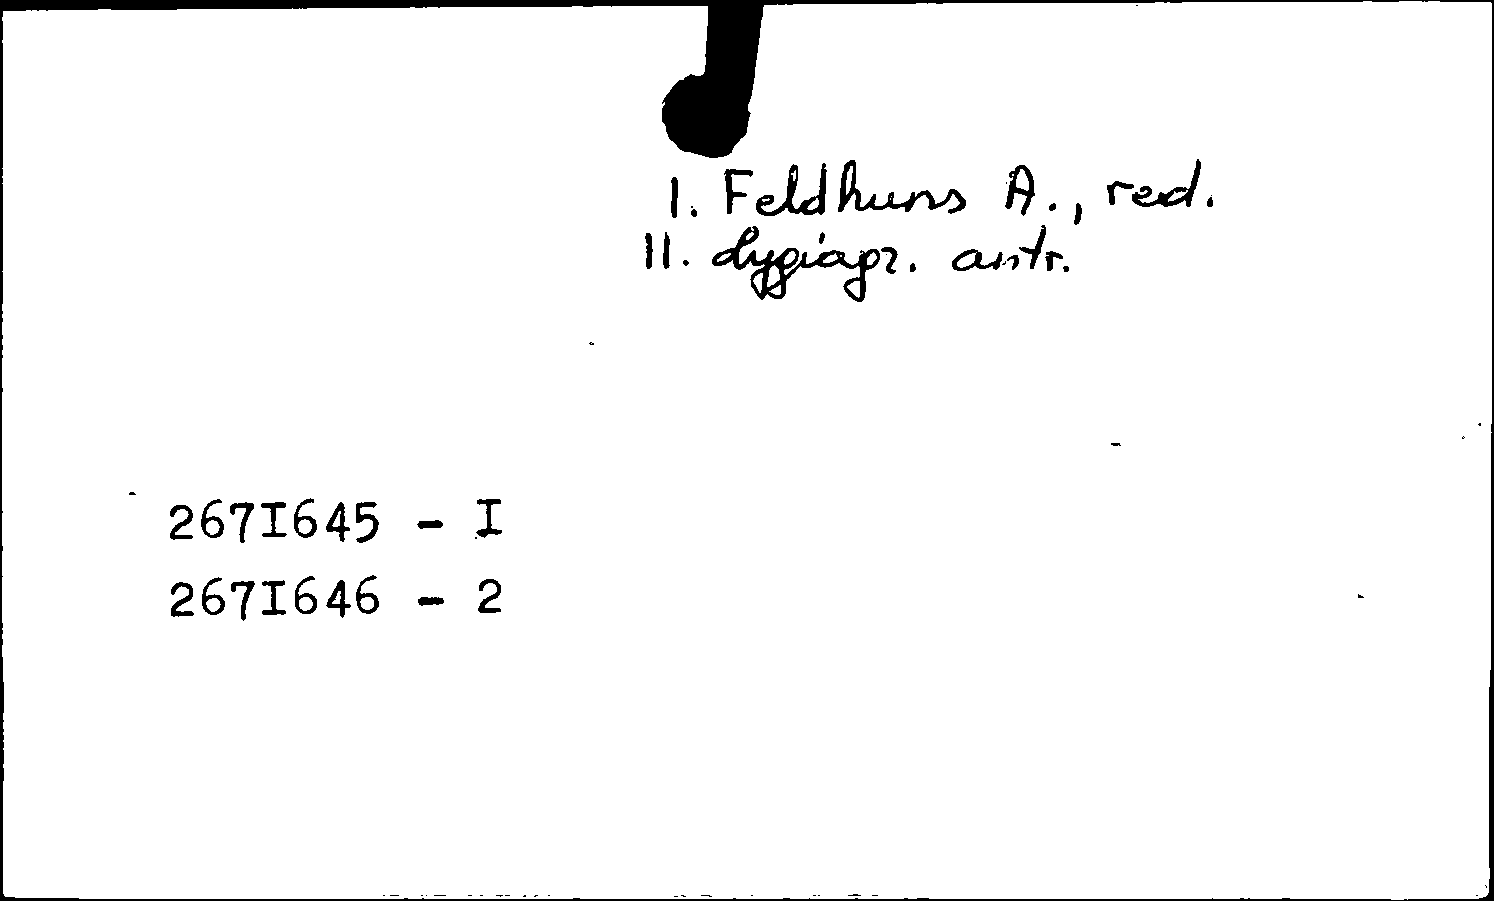 I. Feldhuns A., red.
II. Lygiagr. antr.
267I645 - I
267I646 - 2